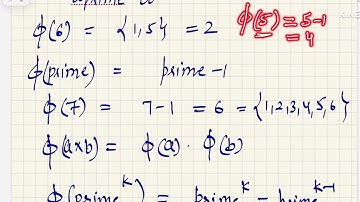 ϕ(6) = {1,5} = 2
ϕ(5) = 5-1
= 4
ϕ(prime) = prime-1
ϕ(7) = 7-1 = 6 = {1,2,3,4,5,6}
ϕ(a×b) = ϕ(a) · ϕ(b)
ϕ(prime^k) = prime^k - prime^k-1